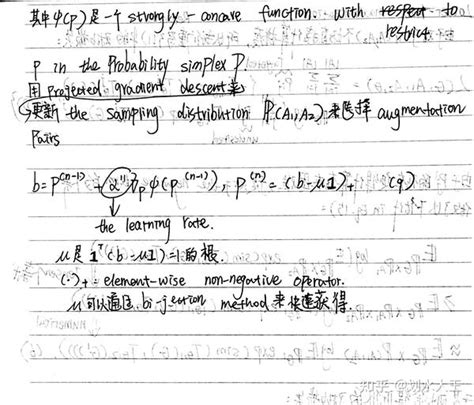 其中ψ(P)是一个 strongly-concave function. with respect to
restrict
P in the Probability simplex P.
用 projected gradient descent 来
更新 the sampling distribution P(A₁,A₂) 来选择 augmentation
Pairs
b=P⁽ⁿ⁻¹⁾+α''∇ₚψ(P⁽ⁿ⁻¹⁾), P⁽ⁿ⁾=(b-μ1)₊ (9)
the learning rate.
μ是 1ᵀ(b-μ1)=1的根.
(·)₊ element-wise non-negative operator.
μ可以通过 bi-jection method 来快速获得.
知乎 @划水大王